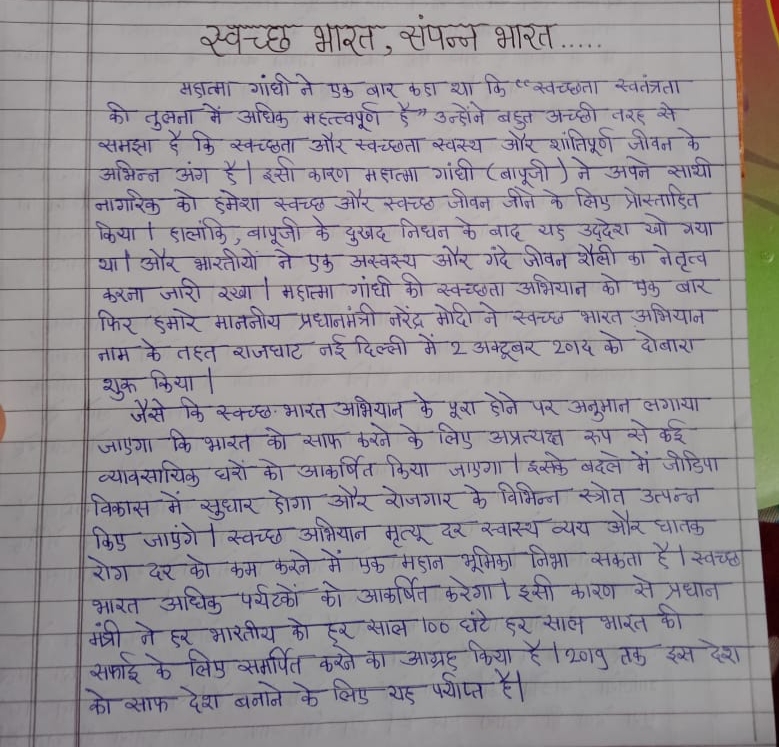 स्वच्छ भारत, संपन्न भारत.....
महात्मा गांधी ने एक बार कहा था कि "स्वच्छता स्वतंत्रता
की तुलना में अधिक महत्त्वपूर्ण है" उन्होंने बहुत अच्छी तरह से
समझा है कि स्वच्छता और स्वच्छता स्वस्थ और शांतिपूर्ण जीवन के
अभिन्न अंग है। इसी कारण महात्मा गांधी (बापूजी) ने अपने साथी
नागरिक को हमेशा स्वच्छ और स्वच्छ जीवन जीने के लिए प्रोत्साहित
किया। हालांकि, बापूजी के दुखद निधन के बाद यह उद्देश खो गया
था। और भारतीयों ने एक अस्वस्थ और गंदे जीवन शैली का नेतृत्व
करना जारी रखा। महात्मा गांधी की स्वच्छता अभियान को एक बार
फिर हमारे माननीय प्रधानमंत्री नरेंद्र मोदी ने स्वच्छ भारत अभियान
नाम के तहत राजघाट नई दिल्ली में 2 अक्टूबर को दोबारा
शुरू किया।
जैसे कि स्वच्छ भारत अभियान के पूरा होने पर अनुमान लगाया
जाएगा कि भारत को साफ करने के लिए अप्रत्यक्ष रूप से कई
व्यावसायिक घरों को आकर्षित किया जाएगा। इसके बदले में जीडिपा
विकास में सुधार होगा और रोजगार के विभिन्न स्त्रोत उत्पन्न
किए जाएंगे। स्वच्छ अभियान मृत्यू दर स्वास्थ व्यय और घातक
रोग दर को कम करने में एक महान भूमिका निभा सकता है। स्वच्छ
भारत अधिक पर्यटकों को आकर्षित करेगा। इसी कारण से प्रधान
मंत्री ने हर भारतीय को हर साल 100 घंटे हर साल भारत की
सफाई के लिए समर्पित करने का आग्रह किया है। 2019 तक इस देश
को साफ देश बनाने के लिए यह पर्याप्त है।